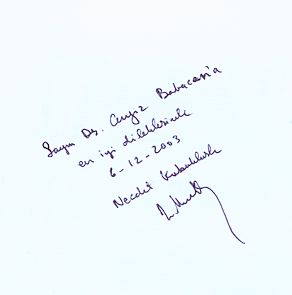 Sayın Dr. Cengiz Babacan'a
en iyi dileklerimle
6-12-2003
Necdet